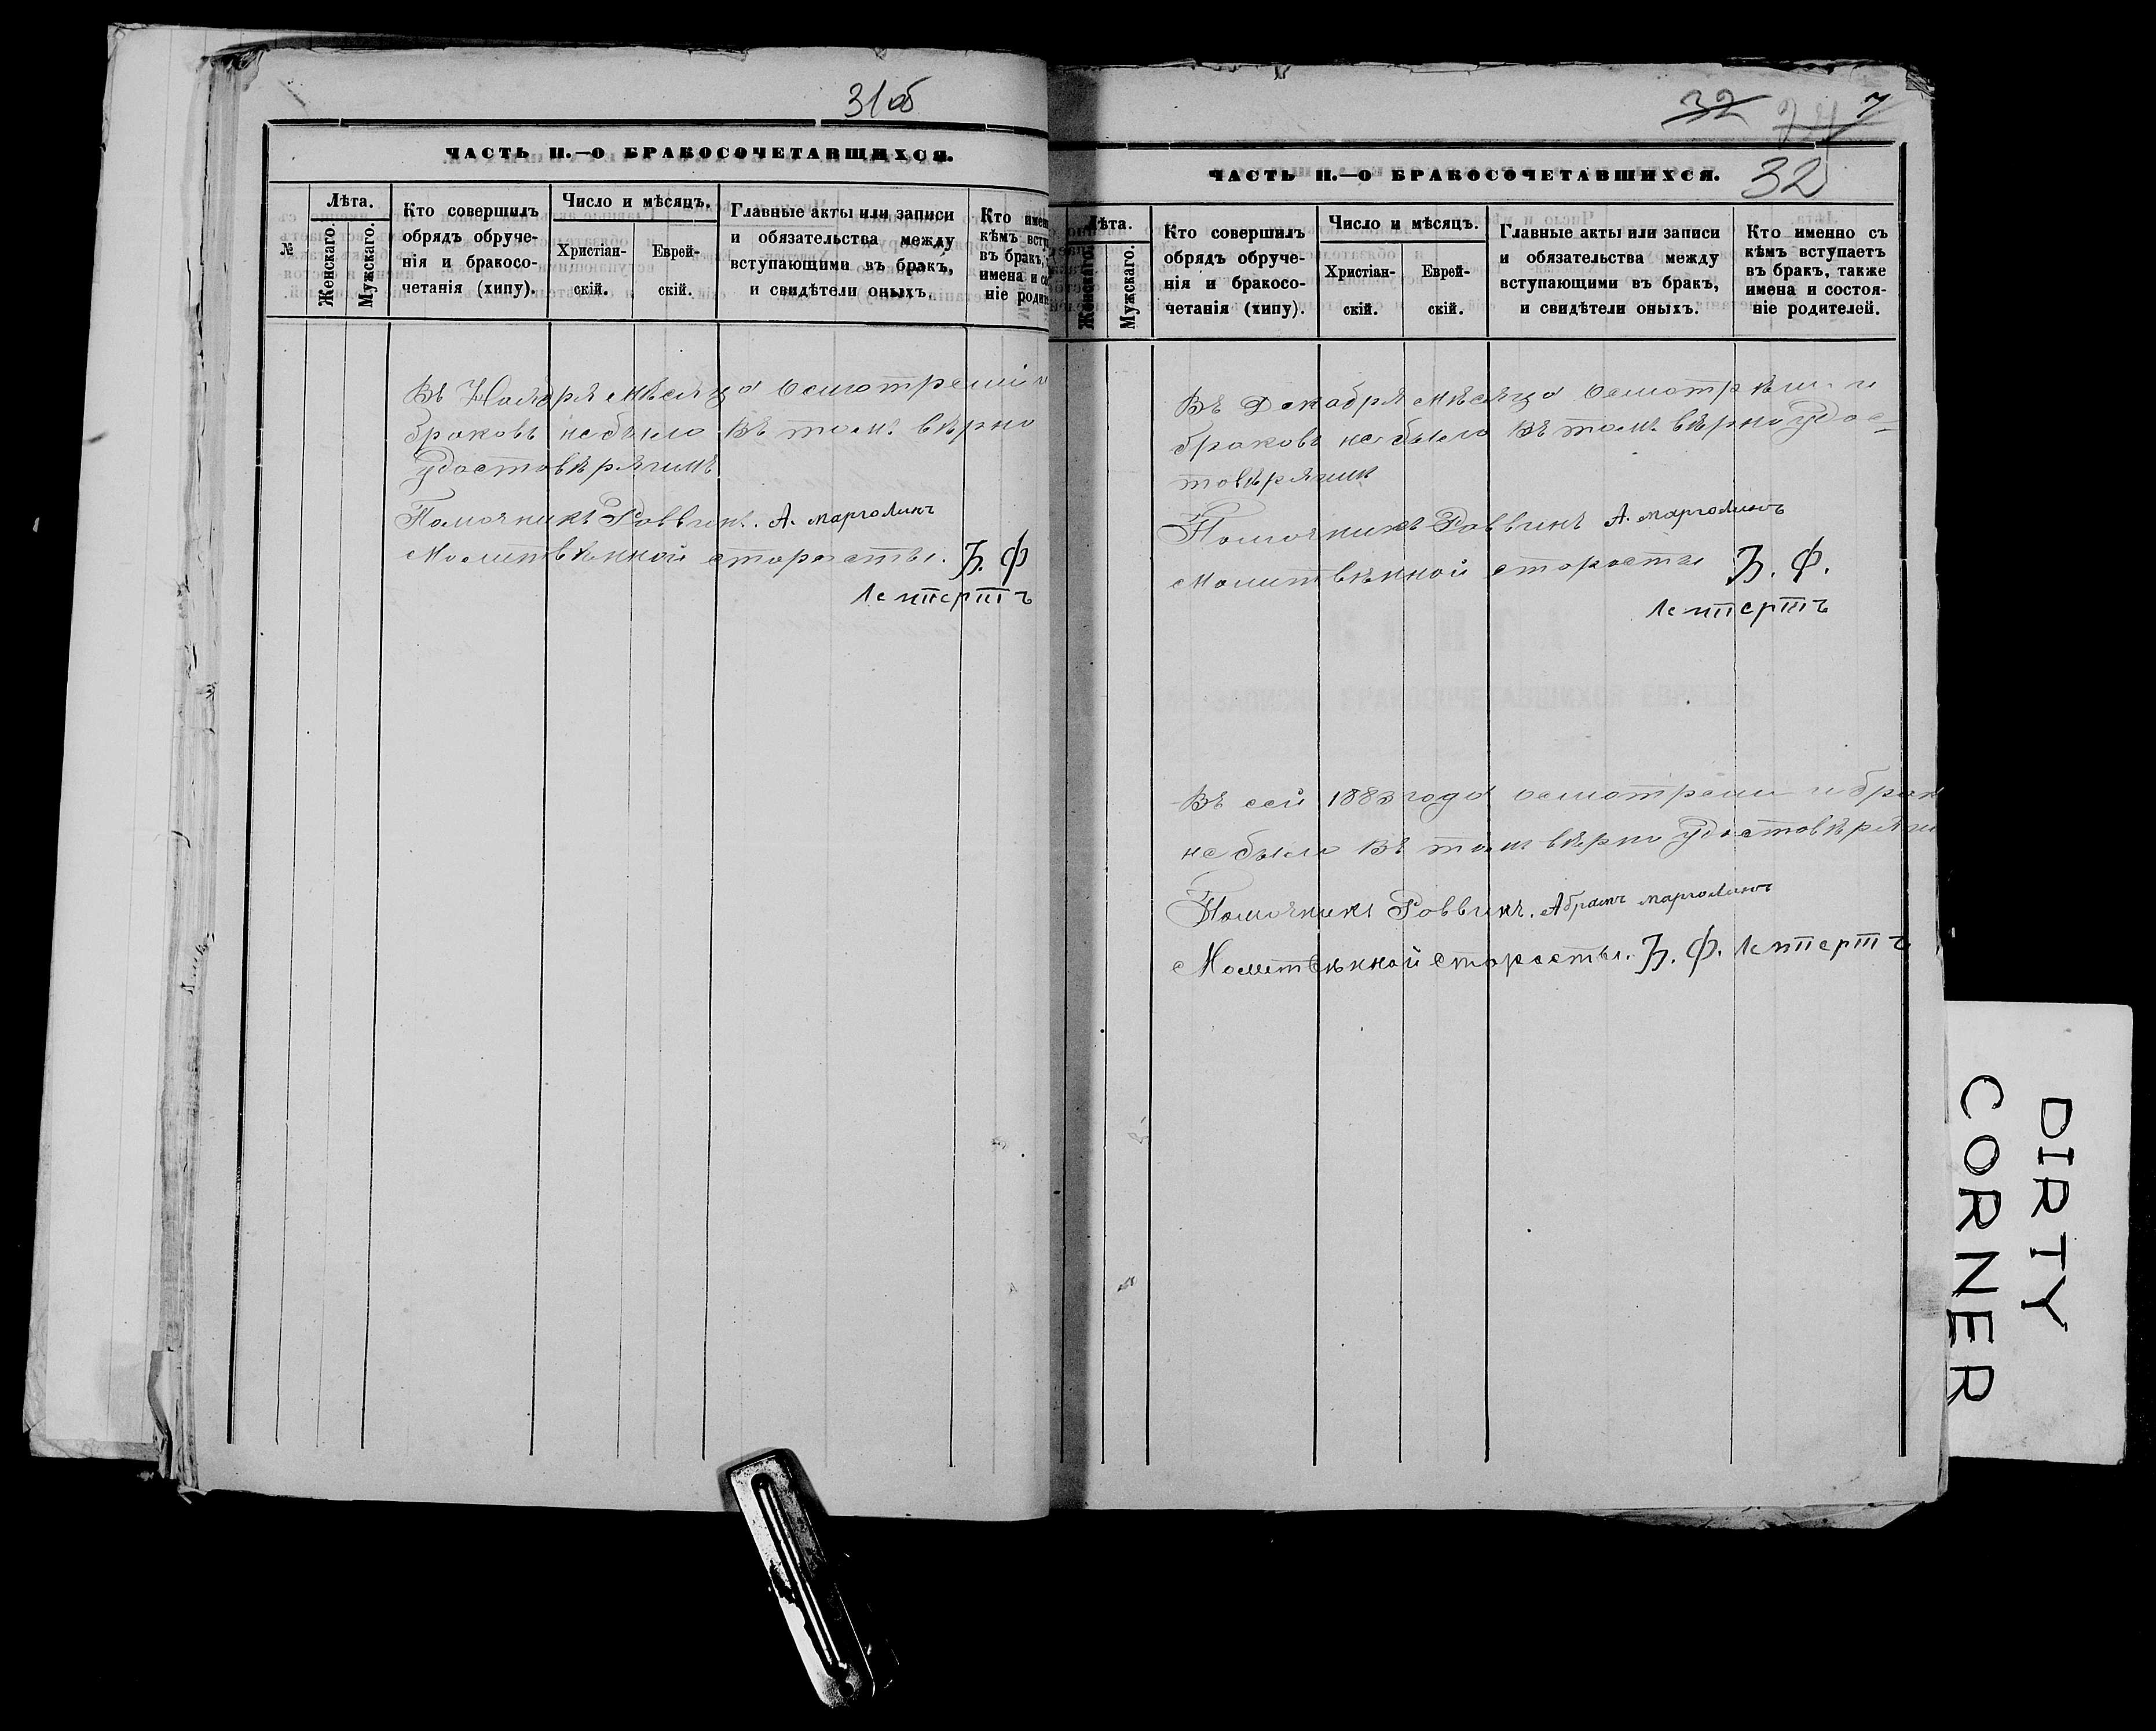 31 об
ЧАСТЬ II.—О БРАКОСОЧЕТАВШИХСЯ.
№
Лѣта.
Женскаго.
Мужскаго.
Кто совершилъ
обрядъ обруче-
нія и бракосо-
четанія (хипу).
Число и мѣсяцъ.
Христіан-
скій.
Еврей-
скій.
Главные акты или записи
и обязательства между
вступающими въ бракъ,
и свидѣтели оныхъ.
Кто имен
кѣмъ всту
въ бракъ,
имена и со
ніе родит
Въ Ноября мѣсяца осмотрели и
браковъ не было въ томъ вѣрно
удостовѣряимъ
Помочникъ Раввинъ. А. Марголинъ
Молитвѣнной старосты. Б. Ф
Лемперштъ
32
7
ЧАСТЬ II.—О БРАКОСОЧЕТАВШИХСЯ.
32
Лѣта.
Женскаго.
Мужскаго.
Кто совершилъ
обрядъ обруче-
нія и бракосо-
четанія (хипу).
Число и мѣсяцъ.
Христіан-
скій.
Еврей-
скій.
Главные акты или записи
и обязательства между
вступающими въ бракъ,
и свидѣтели оныхъ.
Кто именно съ
кѣмъ вступаетъ
въ бракъ, также
имена и состоя-
ніе родителей.
Въ Декабря мѣсяца осмотрѣли и
браковъ не было въ томъ вѣрно удос-
товѣряимъ
Помочникъ Раввинъ А. Марголинъ
Молитвѣнной старосты Б. Ф.
Лемперштъ
Въ сей 1883 года осмотрели и брак
не было въ томъ вѣрно удостовѣряи
Помочникъ Раввинъ. Абрамъ Марголинъ
Молитвѣнной старосты. Б. Ф. Лемперштъ
DIRTY
CORNER